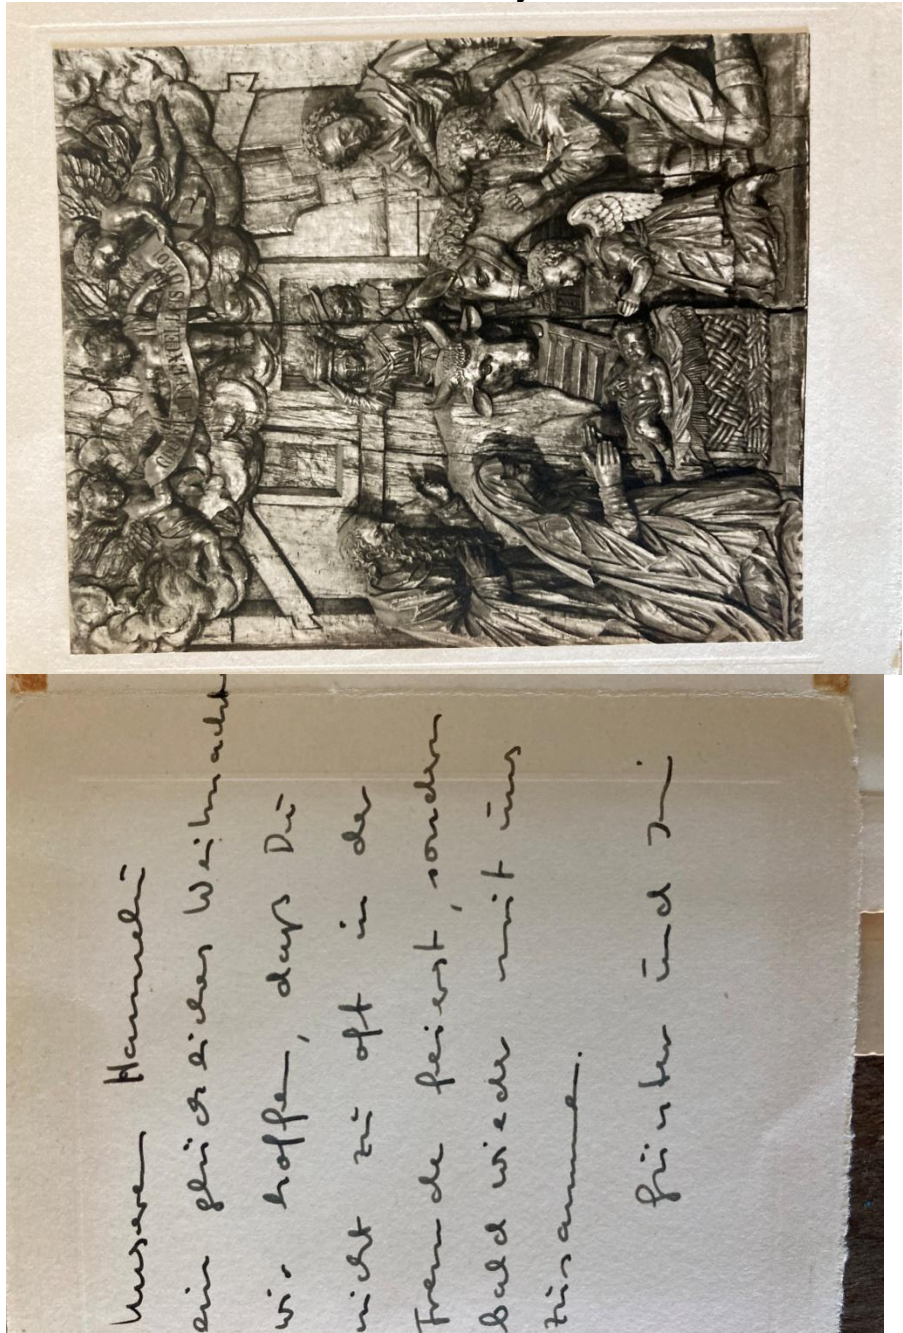 GLORIA IN EXCELSIS
Unserem
ein glückliches Weihnacht
wir hoffen, daß Du
nicht zu oft in der
Fremde feierst, sondern
bald wieder mit uns
zusammen.
Günter und